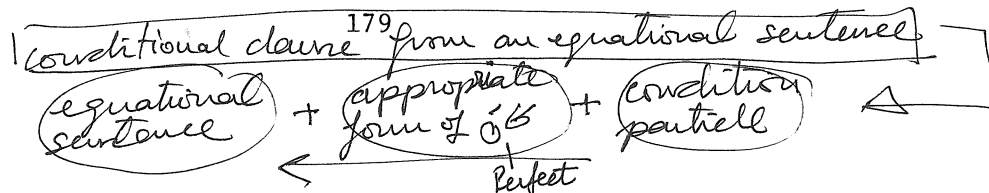 179
conditional clause from an equational sentence
equational sentence + appropriate form of کان + condition particle
Perfect